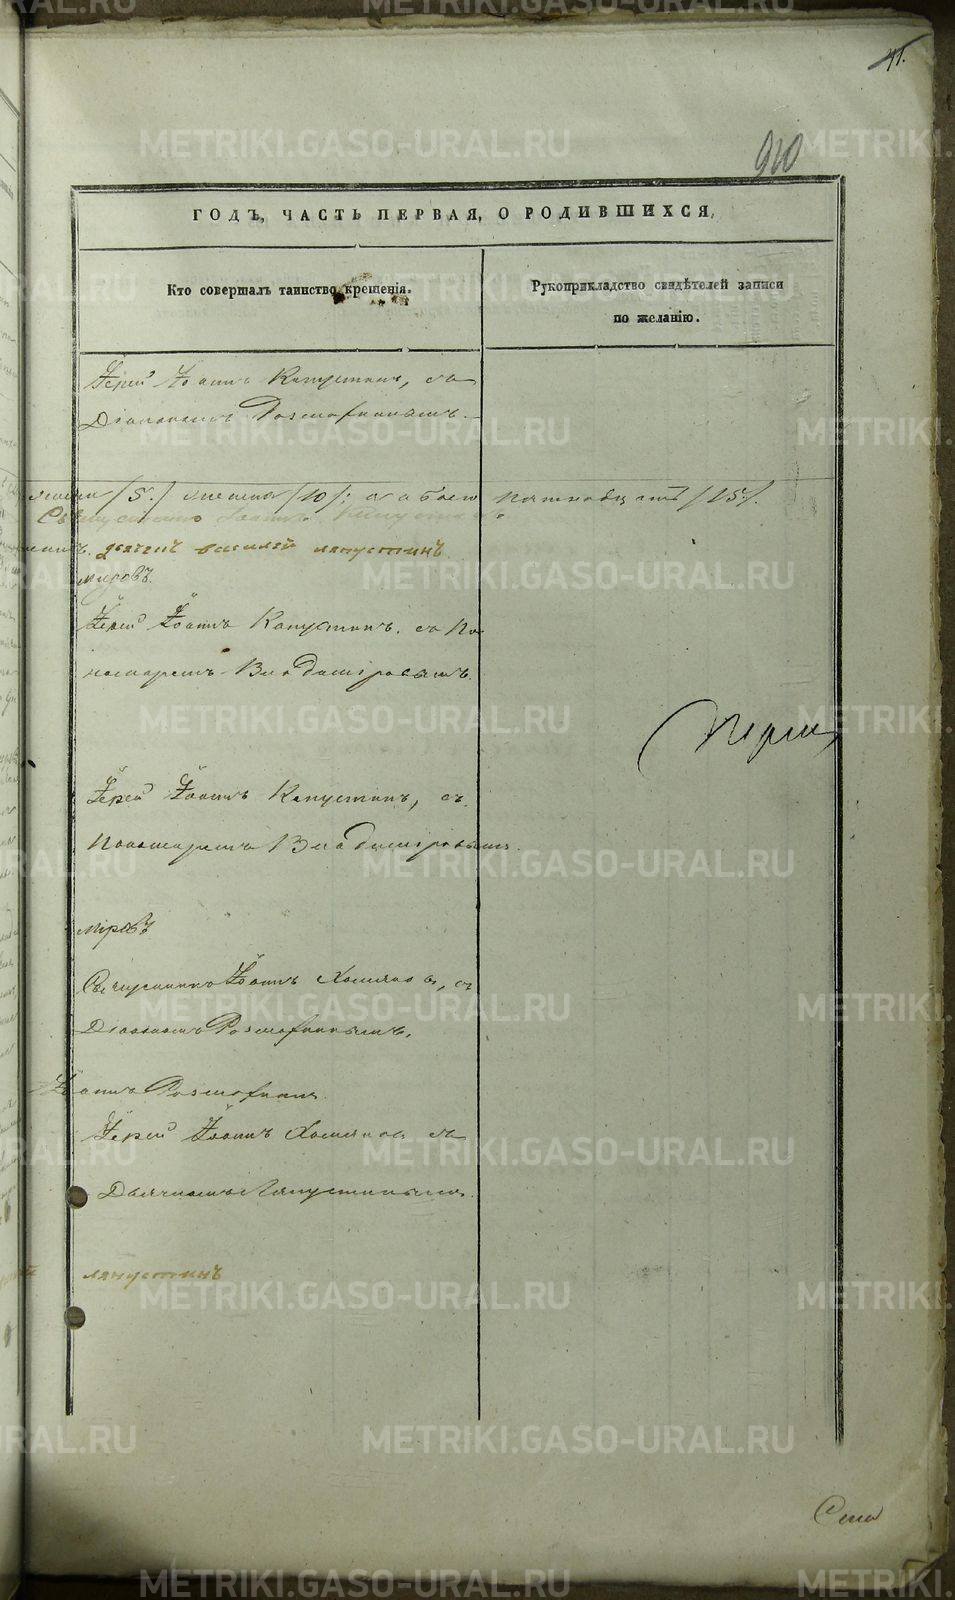 41.
920
ГОДЪ, ЧАСТЬ ПЕРВАЯ, О РОДИВШИХСЯ,
Кто совершалъ таинство крещенія.
Рукоприкладство свидѣтелей записи
по желанію.
Іерей Іоаннъ Капустинъ, съ
Діакономъ
/5./ /10/: а обоего пятнадцать /15/.
Священникъ Іоаннъ Капустинъ
дьячекъ василей ляпустинъ
мировъ.
Іерей Іоаннъ Капустинъ. съ По-
номаремъ Владиміровымъ.
Іерей Іоаннъ Капустинъ, съ
Пономаремъ Владиміровымъ.
міровъ
Священникъ Іоаннъ Хомяковъ, съ
Діакономъ
Іоаннъ
Іерей Іоаннъ Хомяковъ съ
Дьячкомъ Ляпустинымъ.
ляпустинъ
METRIKI.GASO-URAL.RU